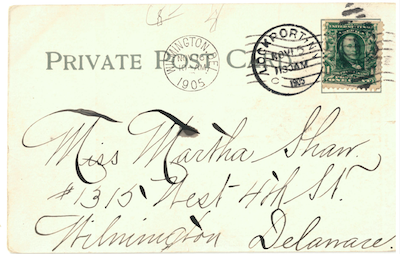 PRIVATE POST CARD
WILMINGTON, DEL.
1905
LOCKPORT, N.Y.
11 30 AM
1905
Miss Martha Shaw.
#1315 West 4th St.
Wilmington Delaware.